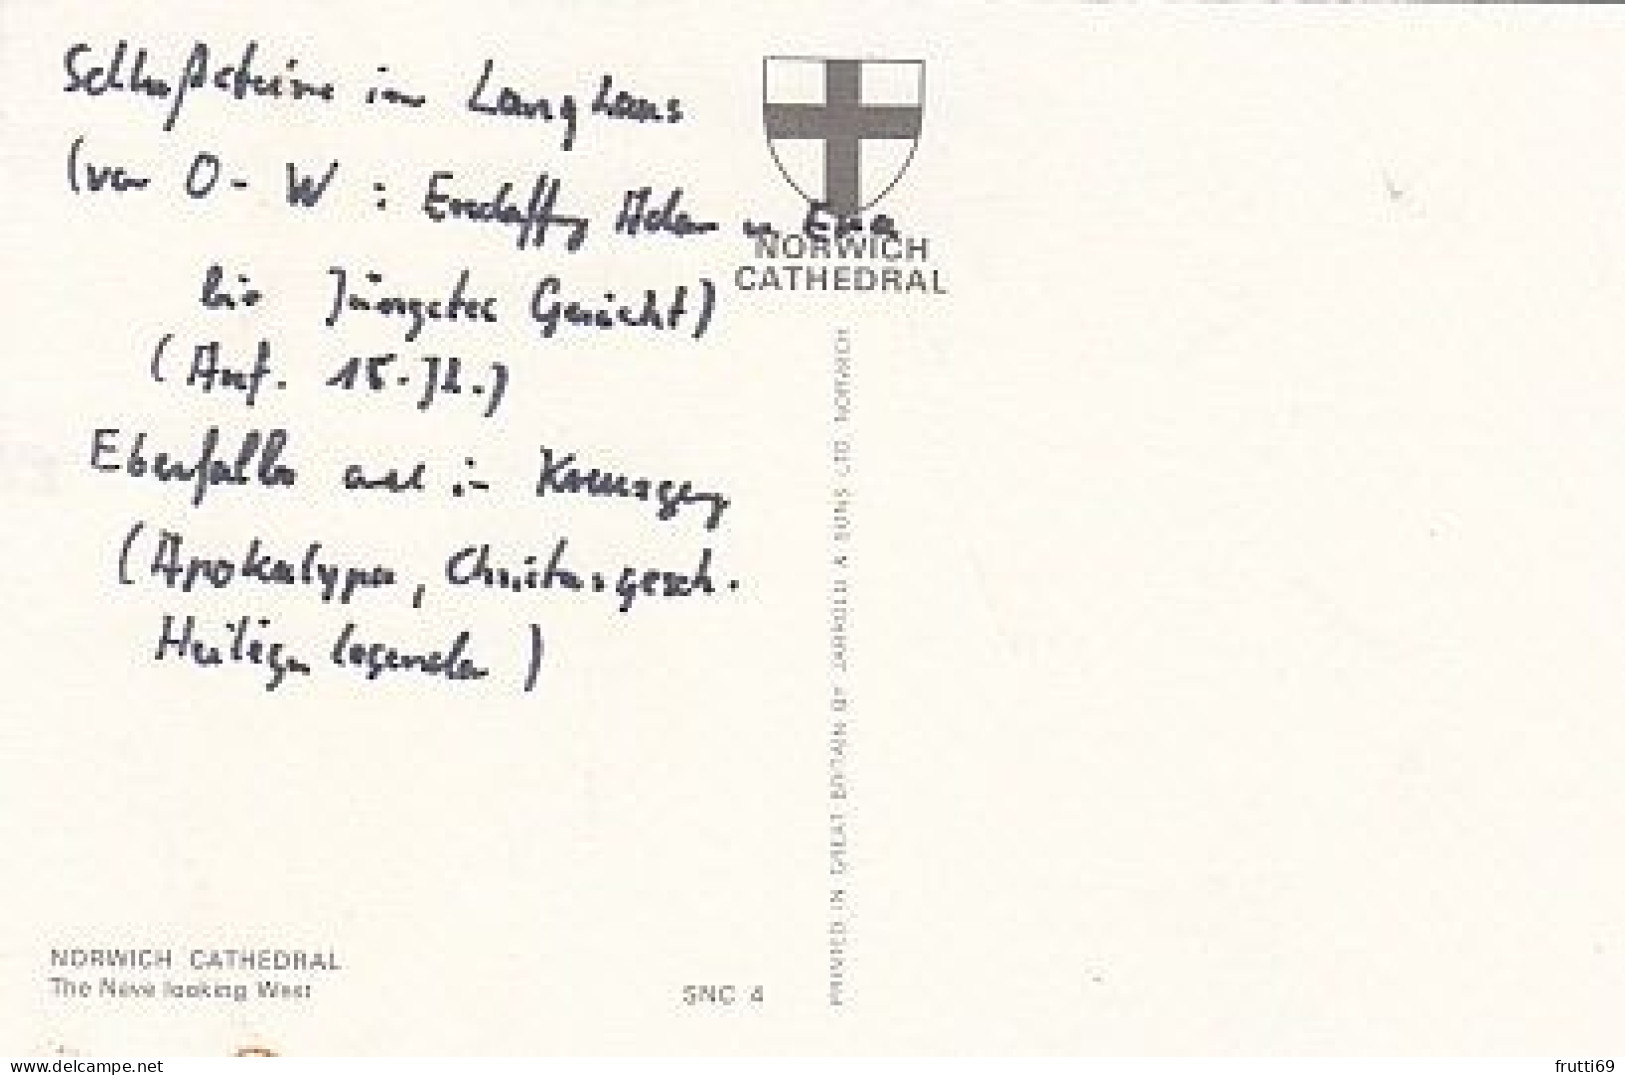 Schlußsteine im Langhaus
(von O - W : Erschaffg Adam u Eva
bis Jüngstes Gericht)
(Anf. 15. Jh.)
Ebenfalls auch in Kreuzgang
(Apokalypse, Christusgesch.
Heiligenlegenden)
NORWICH
CATHEDRAL
PRINTED IN GREAT BRITAIN BY JARROLD & SONS LTD NORWICH
NORWICH CATHEDRAL
The Nave looking West
SNC 4
delcampe.net
frutti69